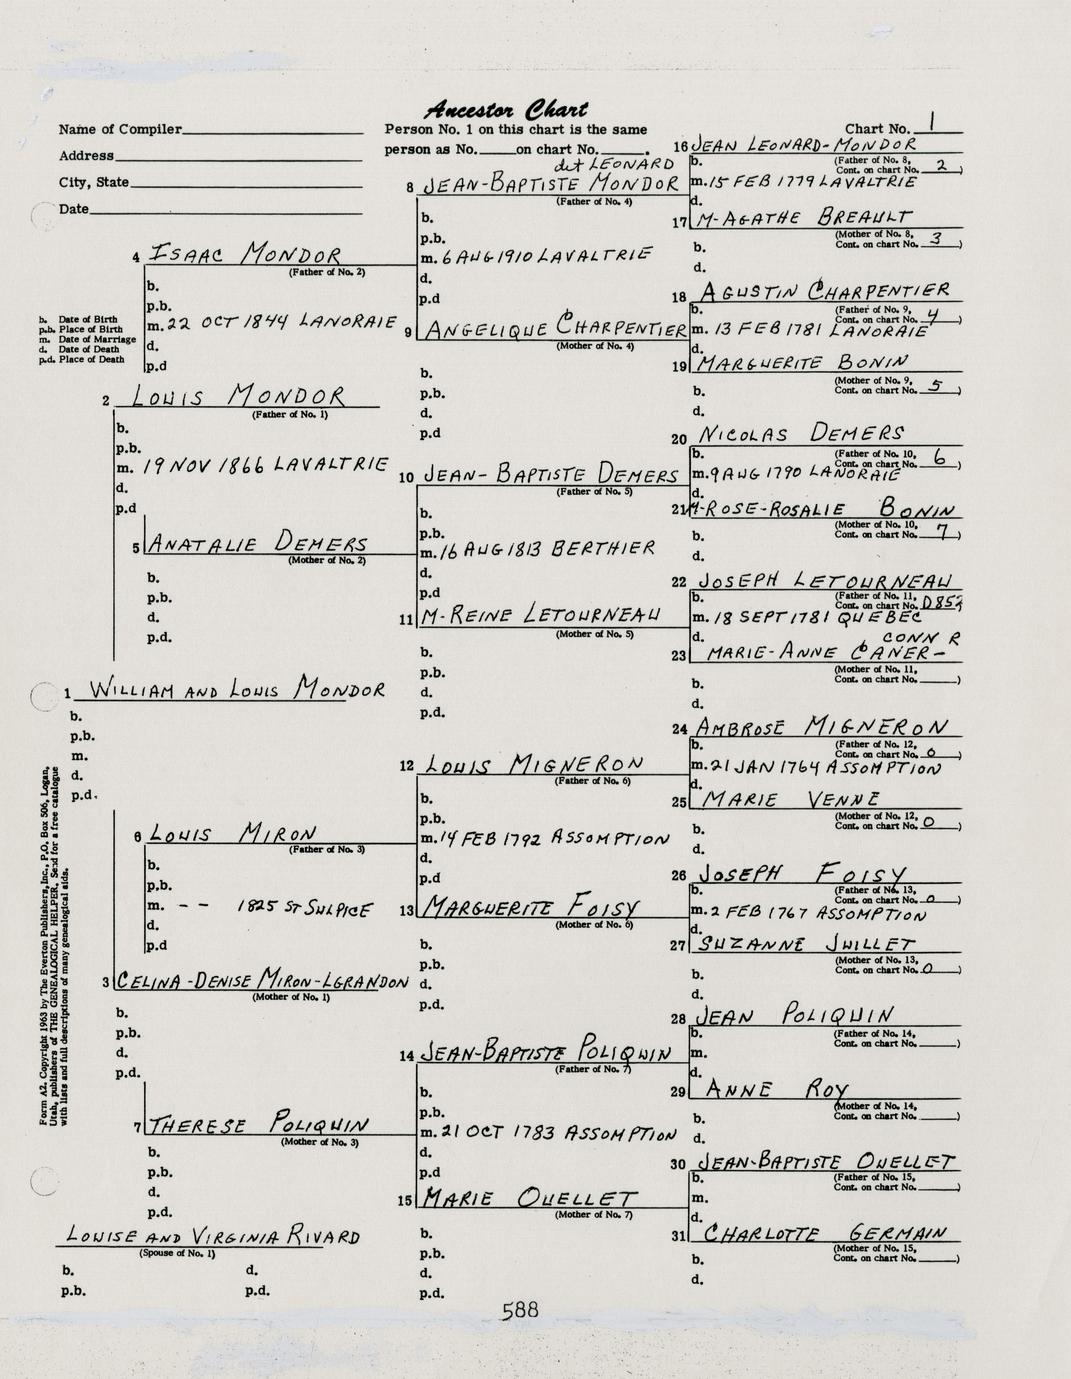 Ancestor Chart
Name of Compiler
Address
City, State
Date
Person No. 1 on this chart is the same
person as No. on chart No. .
Chart No. 1
b. Date of Birth
p.b. Place of Birth
m. Date of Marriage
d. Date of Death
p.d. Place of Death
1 WILLIAM AND LOUIS MONDOR
b.
p.b.
m.
d.
p.d.
2 LOUIS MONDOR
(Father of No. 1)
b.
p.b.
m. 19 NOV 1866 LAVALTRIE
d.
p.d
3 CELINA-DENISE MIRON-LGRANDON
(Mother of No. 1)
b.
p.b.
d.
p.d.
LOUISE AND VIRGINIA RIVARD
(Spouse of No. 1)
b. d.
p.b. p.d.
4 ISAAC MONDOR
(Father of No. 2)
b.
p.b.
m. 22 OCT 1844 LANORAIE
d.
p.d
5 ANATALIE DEMERS
(Mother of No. 2)
b.
p.b.
d.
p.d.
6 LOUIS MIRON
(Father of No. 3)
b.
p.b.
m. - - 1825 ST SULPICE
d.
p.d
7 THERESE POLIQUIN
(Mother of No. 3)
b.
p.b.
d.
p.d.
dit LEONARD
8 JEAN-BAPTISTE MONDOR
(Father of No. 4)
b.
p.b.
m. 6 AUG 1910 LAVALTRIE
d.
p.d
9 ANGELIQUE CHARPENTIER
(Mother of No. 4)
b.
p.b.
d.
p.d
10 JEAN-BAPTISTE DEMERS
(Father of No. 5)
b.
p.b.
m. 16 AUG 1813 BERTHIER
d.
p.d
11 M-REINE LETOURNEAU
(Mother of No. 5)
b.
p.b.
d.
p.d.
12 LOUIS MIGNERON
(Father of No. 6)
b.
p.b.
m. 14 FEB 1792 ASSOMPTION
d.
p.d
13 MARGUERITE FOISY
(Mother of No. 6)
b.
p.b.
d.
p.d.
14 JEAN-BAPTISTE POLIQUIN
(Father of No. 7)
b.
p.b.
m. 21 OCT 1783 ASSOMPTION
d.
p.d
15 MARIE OUELLET
(Mother of No. 7)
b.
p.b.
d.
p.d.
16 JEAN LEONARD-MONDOR
b. (Father of No. 8,
Cont. on chart No. 2)
m. 15 FEB 1779 LAVALTRIE
d.
17 M-AGATHE BREAULT
(Mother of No. 8,
b. Cont. on chart No. 3)
d.
18 AGUSTIN CHARPENTIER
b. (Father of No. 9,
Cont. on chart No. 4)
m. 13 FEB 1781 LANORAIE
d.
19 MARGUERITE BONIN
(Mother of No. 9,
b. Cont. on chart No. 5)
d.
20 NICOLAS DEMERS
b. (Father of No. 10,
Cont. on chart No. 6)
m. 9 AUG 1790 LANORAIE
d.
21 M-ROSE-ROSALIE BONIN
(Mother of No. 10,
b. Cont. on chart No. 7)
d.
22 JOSEPH LETOURNEAU
b. (Father of No. 11,
Cont. on chart No.
m. 18 SEPT 1781 QUEBEC
d. CONN R
23 MARIE-ANNE CANER-
(Mother of No. 11,
b. Cont. on chart No. )
d.
24 AMBROSE MIGNERON
b. (Father of No. 12,
Cont. on chart No. 0)
m. 21 JAN 1764 ASSOMPTION
d.
25 MARIE VENNE
(Mother of No. 12,
b. Cont. on chart No. 0)
d.
26 JOSEPH FOISY
b. (Father of No. 13,
Cont. on chart No. 0)
m. 2 FEB 1767 ASSOMPTION
d.
27 SUZANNE JUILLET
(Mother of No. 13,
b. Cont. on chart No. 0)
d.
28 JEAN POLIQUIN
b. (Father of No. 14,
Cont. on chart No. )
m.
d.
29 ANNE ROY
(Mother of No. 14,
b. Cont. on chart No. )
d.
30 JEAN-BAPTISTE OUELLET
b. (Father of No. 15,
Cont. on chart No. )
m.
d.
31 CHARLOTTE GERMAIN
(Mother of No. 15,
b. Cont. on chart No. )
d.
Form A2. Copyright 1963 by The Everton Publishers, Inc., P.O. Box 506, Logan,
Utah, publishers of THE GENEALOGICAL HELPER. Send for a free catalogue
with lists and full descriptions of many genealogical aids.
588